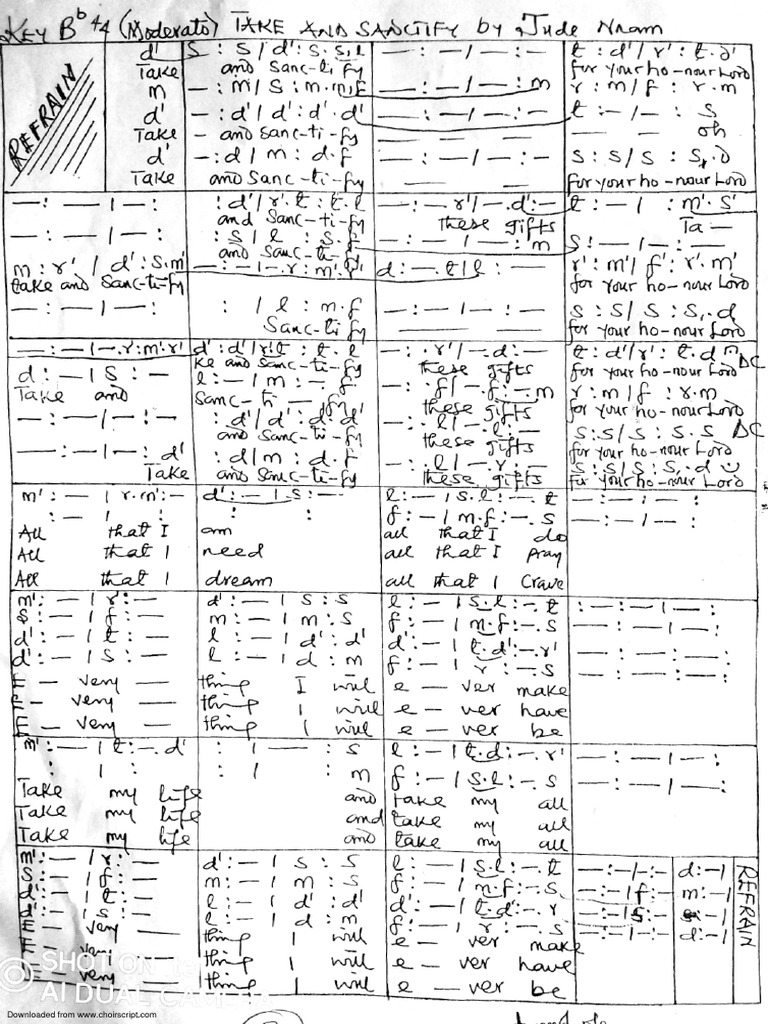 KEY Bb 4/4 (Moderato) TAKE AND SANCTIFY by Jude Nnam
REFRAIN
d' s : s / d' : s . s , l — : — / — : — t : d' / r' : t . d'
Take and Sanc-ti fy for your ho-nour Lord
m — : m / s : m . m , f — : — / — : m r : m / f : r . m
d' — : d' / d' : d' . d' — : — / — : — t : — / — : s
Take — and Sanc-ti-fy — — — oh
d' — : d / m : d . f — : — / — : — s : s / s : s , . d
Take and Sanc-ti-fy for your ho-nour Lord
— : — / — : — : d' / r' . t : t . l — : r' / — . d' : — t : — / : m' . s'
and Sanc-ti-fy these gifts Ta —
: s / l : s . f — : — / — : m s : — / — : —
and Sanc-ti-fy
m : r' / d' : s . m' — : — / — . r : m' . d : — . t / l : — r' : m' / f' : r' . m'
take and Sanc-ti-fy for your ho-nour Lord
— : — / — : : / l : m . f — : — / — : — s : s / s : s , . d
Sanc-ti fy for your ho-nour Lord
— : — / — . r : m' . r' d' : d' / r' . t : t . l : r' / — . d : — t : d' / r' : t . d DC
ke and Sanc-ti-fy these gifts for your ho-nour Lord
d : — / s : — l : — / m : — f — : f / — f : — m r : m / f : r . m
Take and Sanc-ti — fy these gifts for your ho-nour Lord
— : — / — : — : d' / d' : d' . d' — : l / — l : — s : s / s : s . s DC
and Sanc-ti-fy these gifts for your ho-nour Lord
— : — / — : d' : d / m : d . f — : l / — . r : — s : s / s : s , . d
Take and Sanc-ti-fy these gifts for your ho-nour Lord
m' : — / r . m' : — d' : — / s : — l : — / s . l : — . t — : — / — :
: — / : : : f : — / m . f : — . s — : — / — :
All that I am all that I do
All that I need all that I pray
All that I dream all that I crave
m' : — / r' : — d' : — / s : s l : — / s . l : — . t — : — / — :
s : — / f : — m : — / m : s f : — / m . f : — . s — : — / — :
d' : — / t : — l : — / d' : d' d' : — / t . d' : — . r' — : — / — :
d' : — / s : — l : — / d : m f : — / r : — . s — : — / — :
E — very — thing I will e — ver make
E — very — thing I will e — ver have
E — very — thing I will e — ver be
m' : — / t : — . d' : / — : s l : — / t . d : — . r' — : — / — :
: / : : / m f : — / s . l : — . s — : — / — :
Take my life and take my all
Take my life and take my all
Take my life and take my all
m' : — / r : — d' : — / s : s l : — / s . l : — . t — : — / — : — d : — /
s : — / f : — m : — / m : s f : — / m . f : — . s — : — / f : — m : — /
d' : — / t : — l : — / d' : d' d' : — / t . d' : — . r — : — / s : — /
d' : — / s : — l : — / d : m f : — / r : — . s — : — / — : — d : — /
REFRAIN
E — very — thing I will e — ver make
E — very — thing I will e — ver have
very — thing I will e — ver be
SHOT ON
AI DUAL CAMERA
Downloaded from www.choirscript.com